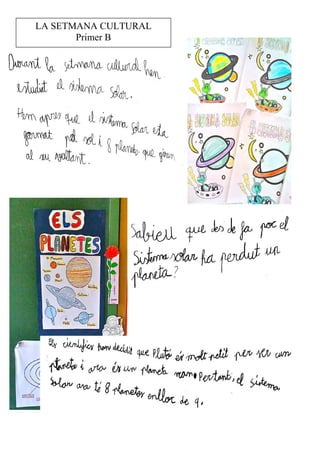 LA SETMANA CULTURAL
Primer B
Durant la setmana cultural hem
estudiat el sistema solar.
Hem après que el sistema solar està
format pel sol i 8 planetes que giren
al seu voltant.
ELS
PLANETES
Sabíeu que des de fa poc el
Sistema solar ha perdut un
planeta?
Els científics han decidit que Plutó és molt petit per ser un
planeta i ara és un planeta nan. Per tant, el sistema
Solar ara té 8 planetes enlloc de 9.